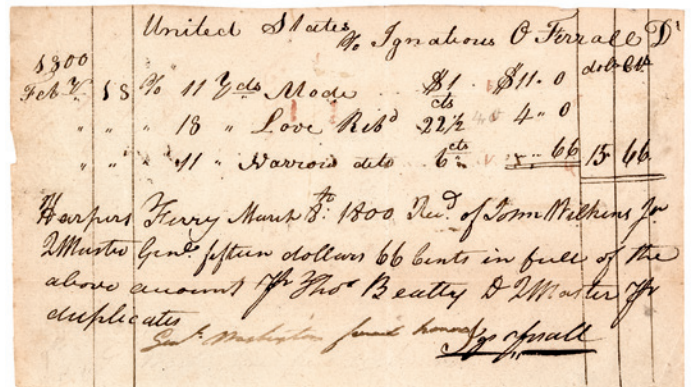 United States
To Ignatious O Ferrall Dr
1800
dols Cts
Feby 18 To 11 Yds Mode $1 $11. 0
" " " 18 " Love Ribd 22½ cts 4 " 0
" " " 11 " Narrow dito 6 cts " " 66 15 66
Harpers Ferry March 8th 1800 Recd of John Wilkins Jnr
QMaster Genl fifteen dollars 66 Cents in full of the
above account Pr Thos Beatty D QMaster Pr
duplicates
Genl Washington funeral honors
Igs OFerrall